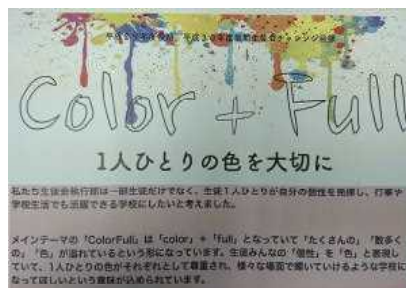 Color + Full
1人ひとりの色を大切に
私たち生徒会執行部は一部生徒だけでなく、生徒1人ひとりが自分の個性を発揮し、行事や
学校生活でも活躍できる学校にしたいと考えました。
メインテーマの「ColorFull」は「color」+「full」となっていて「たくさんの」「数多く
の」「色」が溢れているという形になっています。生徒みんなの「個性」を「色」と表現し
ていて、1人ひとりの色がそれぞれとして尊重され、様々な場面で輝いていけるような学校に
なって欲しいという意味が込められています。